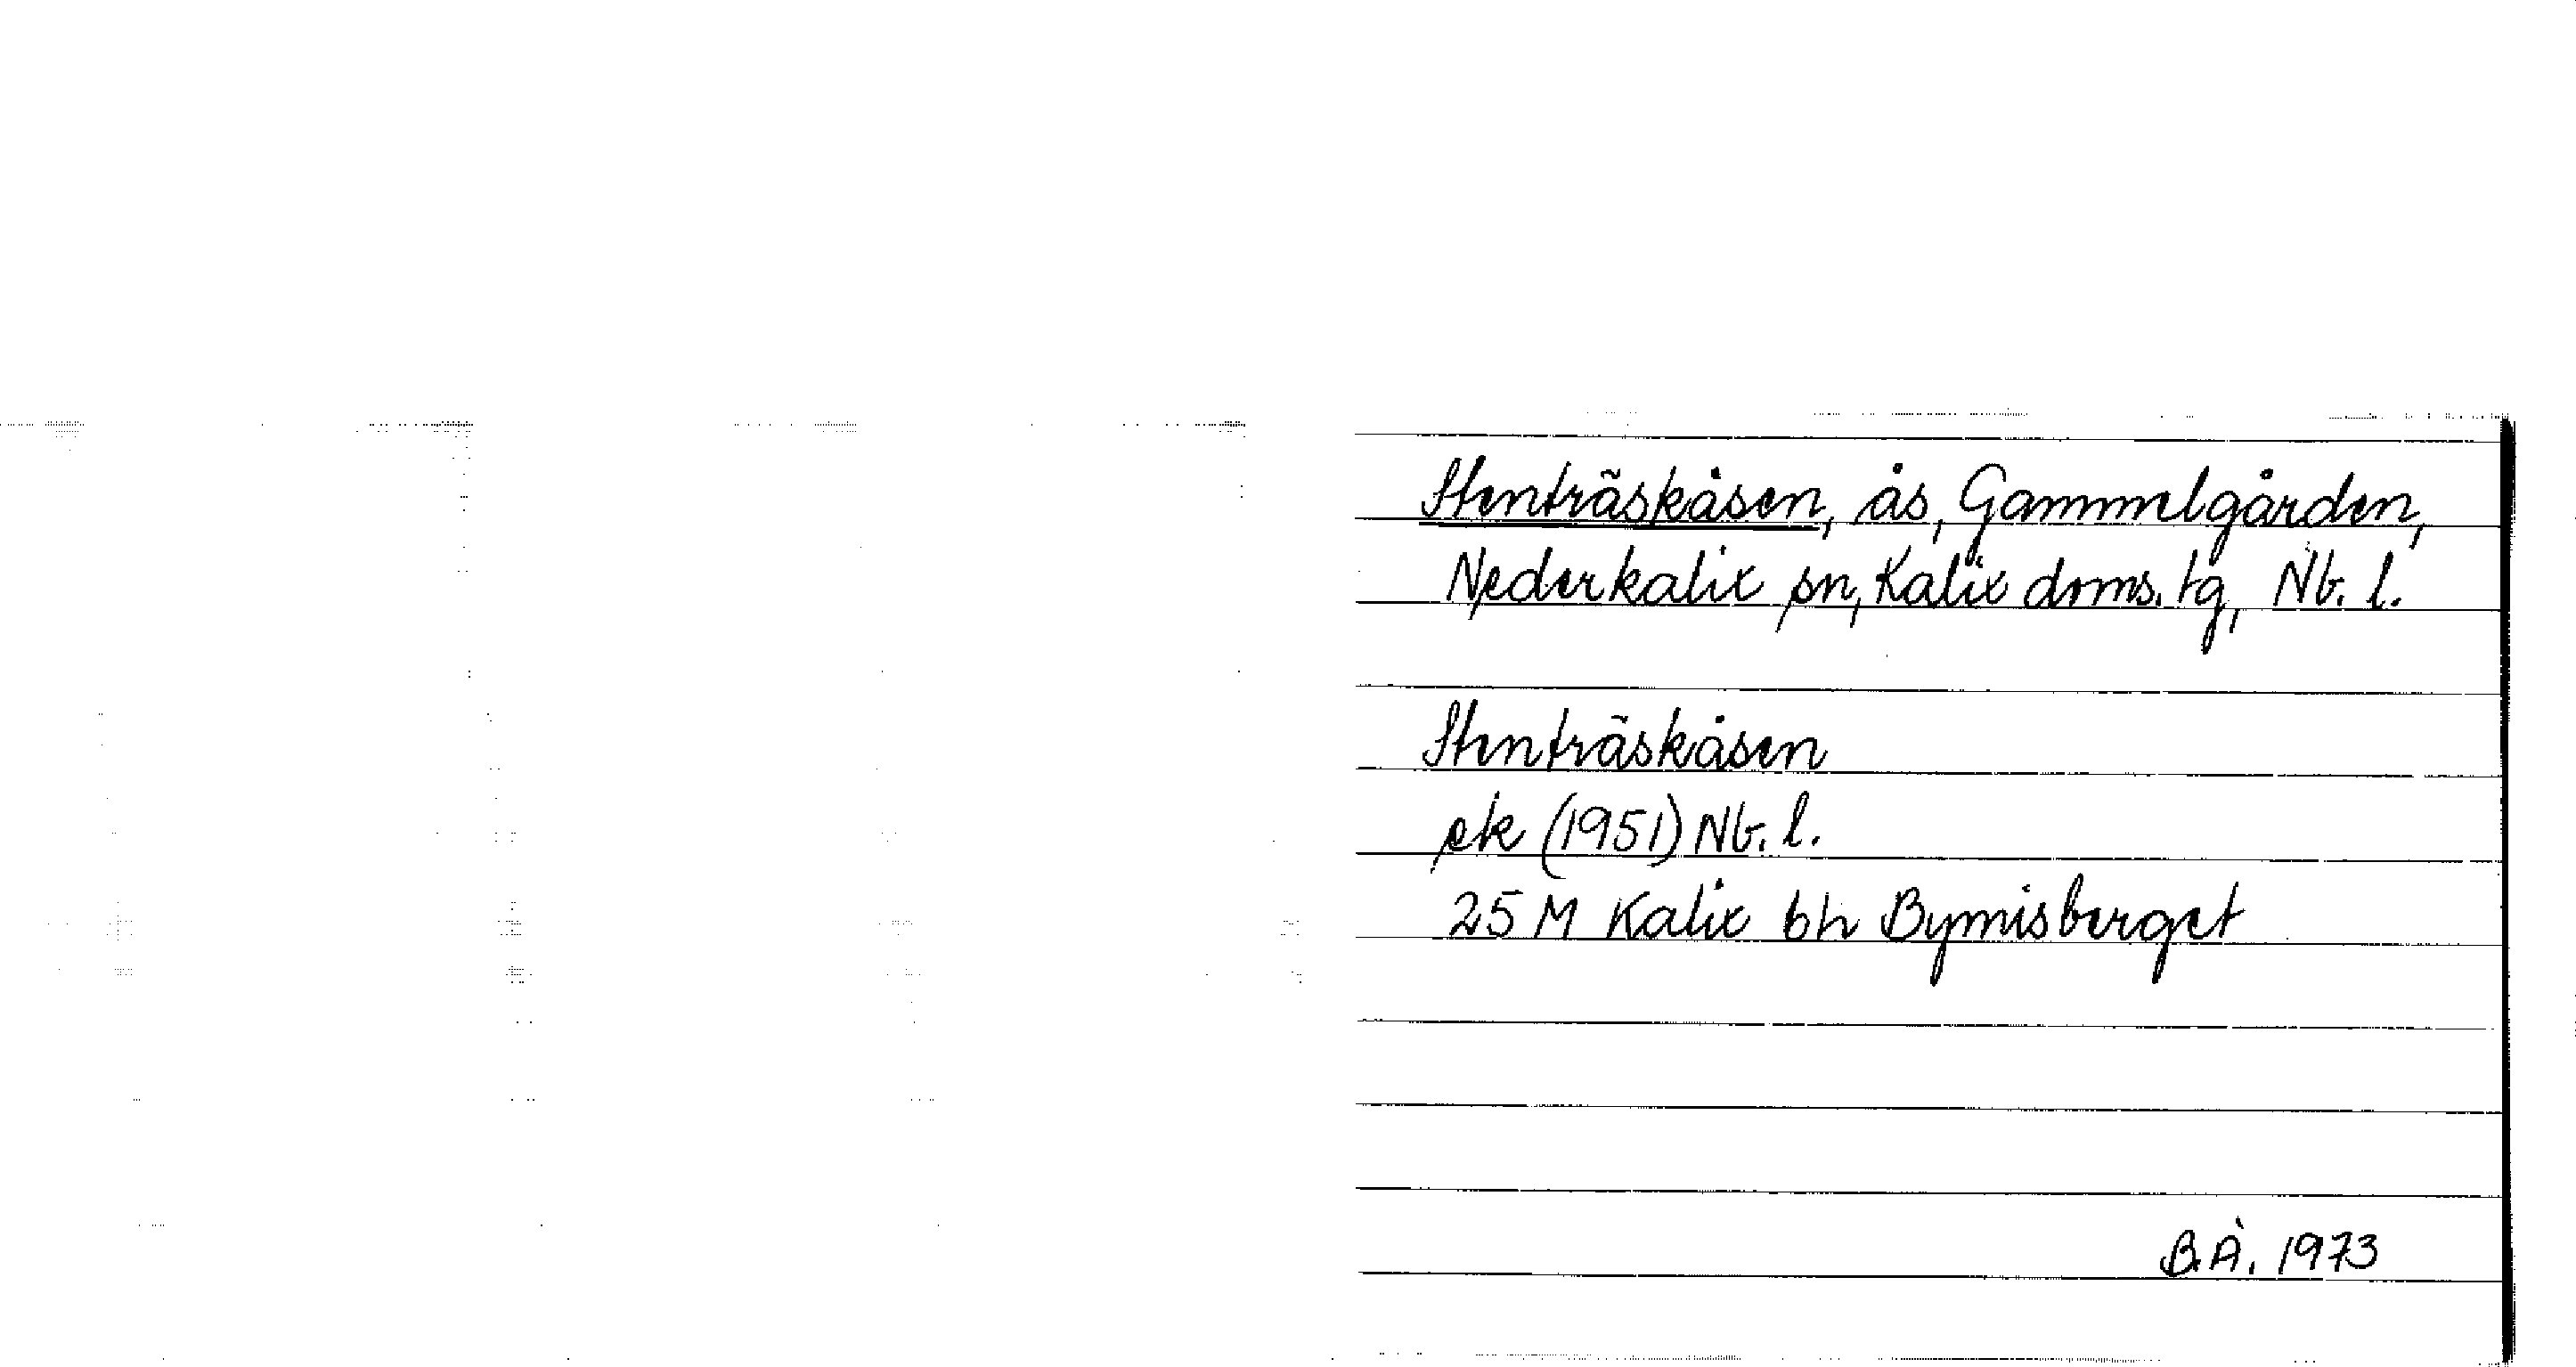 Stenträskåsen, ås, Gammelgården,
Nederkalix sn, Kalix doms. tg, Nb. l.
Stenträskåsen
ek (1951) Nb. l.
25 M Kalix bh Bymisberget
B.Å. 1973